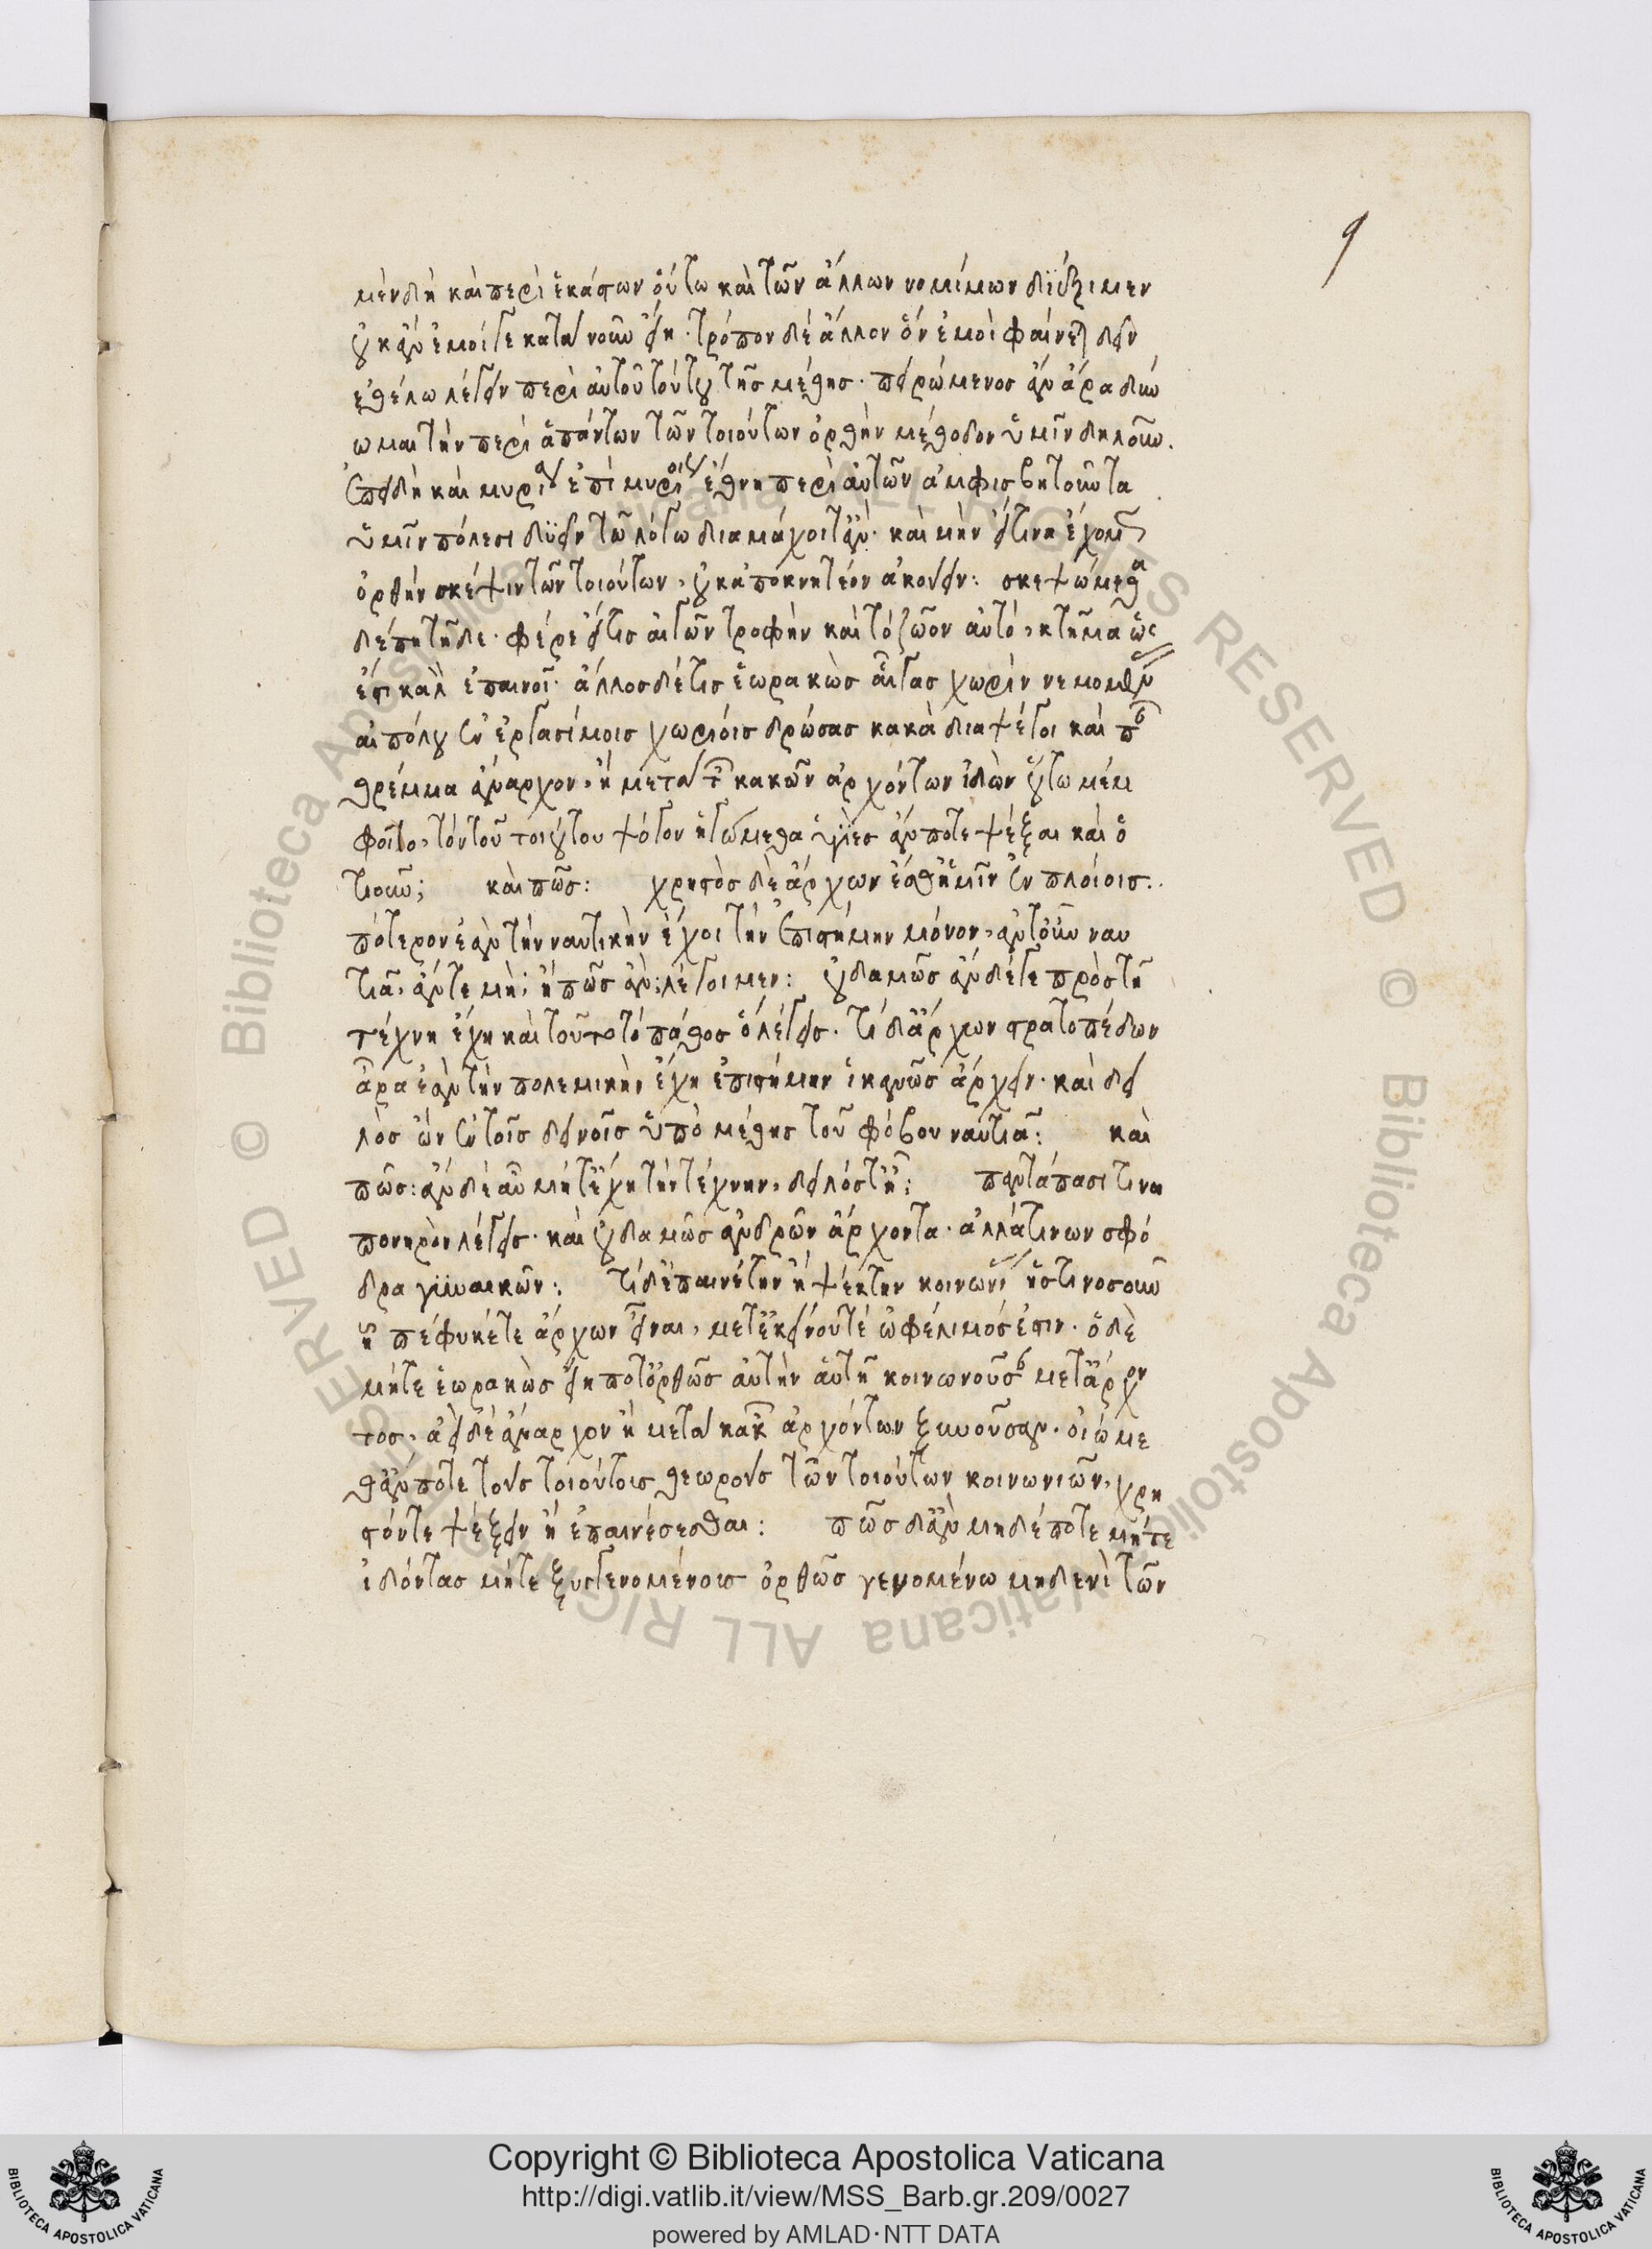 9
μὲν δὴ καὶ περὶ ἑκάστων οὕτω καὶ τῶν ἄλλων νομίμων διέξιμεν
οὐκ ἂν ἐμοί γε κατὰ νοῦν εἴη· τρόπον δὲ ἄλλον ὃν ἐμοὶ φαίνεται δεῖν
ἐθέλω λέγειν περὶ αὐτοῦ τούτου τῆς μέθης· πειρώμενος ἂν ἄρα δύν
ωμαι τὴν περὶ ἁπάντων τῶν τοιούτων ὀρθὴν μέθοδον ὑμῖν δηλοῦν.
ἐπειδὴ καὶ μυρία ἐπὶ μυρίοις ἔθνη περὶ αὐτῶν ἀμφισβητοῦντα
ὑμῖν πόλεσι δυεῖν τῷ λόγῳ διαμάχοιτ' ἄν· καὶ μὴν εἴ τινα ἔχομεν
ὀρθὴν σκέψιν τῶν τοιούτων, οὐκ ἀποκνητέον ἀκούειν: σκεψώμεθα
δέ πῃ τῇδε· φέρε εἴ τις αἰγῶν τροφὴν καὶ τὸ ζῶον αὐτό, κτῆμα ὡς
ἔστι καλὸν ἐπαινοῖ· ἄλλος δέ τις ἑωρακὼς αἶγας χωρὶς νεμομένας
αἰπόλου ἐν ἐργασίμοις χωρίοις δρώσας κακὰ διαψέγοι καὶ πᾶν
θρέμμα ἄναρχον, ἢ μετὰ τῶν κακῶν ἀρχόντων ἰδὼν οὕτω μέμ
φοιτο, τὸν τοῦ τοιούτου ψόγον ἡγώμεθα ὑγιὲς ἄν ποτε ψέξαι καὶ ὁ
τιοῦν; καὶ πῶς: χρηστὸς δὲ ἄρχων ἔσθ' ἡμῖν ἐν πλοίοις:
πότερον ἐὰν τὴν ναυτικὴν ἔχοι τὴν ἐπιστήμην μόνον, ἄντ' οὖν ναυ
τιᾷ, ἄντε μή; ἢ πῶς ἄν; λέγοιμεν: οὐδαμῶς ἂν δέ γε πρὸς τῇ
τέχνῃ ἔχῃ καὶ τοῦτο τὸ πάθος ὃ λέγεις. τί δ' ἄρχων στρατοπέδων
ἆρα ἐὰν τὴν πολεμικὴν ἔχῃ ἐπιστήμην ἱκανῶς ἄρχειν· καὶ δει
λὸς ὢν ἐν τοῖς δεινοῖς ὑπὸ μέθης τοῦ φόβου ναυτιᾷ: καὶ
πῶς: ἂν δὲ αὖ μήτ' ἔχῃ τὴν τέχνην, δειλός τ' ᾖ; παντάπασι τινα
πονηρὸν λέγεις· καὶ οὐδαμῶς ἀνδρῶν ἄρχοντα· ἀλλά τινων σφό
δρα γυναικῶν: τί δ' ἐπαινέτην ἢ ψέκτην κοινωνίας ἡστινοσοῦν
ᾗ πέφυκέ τε ἄρχων εἶναι, μετ' ἐκείνου τὲ ὠφέλιμός ἐστιν· ὁ δὲ
μήτε ἑωρακὼς εἴη ποτ' ὀρθῶς αὐτὴν αὑτῇ κοινωνοῦσαν μετ' ἄρχον
τος, ἀεὶ δὲ ἄναρχον ἢ μετὰ κακῶν ἀρχόντων ξυνοῦσαν· οἰώμε
θ' ἄν ποτε τοὺς τοιούτοις θεωροὺς τῶν τοιούτων κοινωνιῶν, χρη
στόν τε ψέξειν ἢ ἐπαινέσεσθαι: πῶς δ' ἂν μηδέποτε μήτε
ἰδόντας μήτε ξυγγενομένοις ὀρθῶς γενομένῳ μηδενὶ τῶν
Copyright © Biblioteca Apostolica Vaticana
http://digi.vatlib.it/view/MSS_Barb.gr.209/0027
powered by AMLAD·NTT DATA